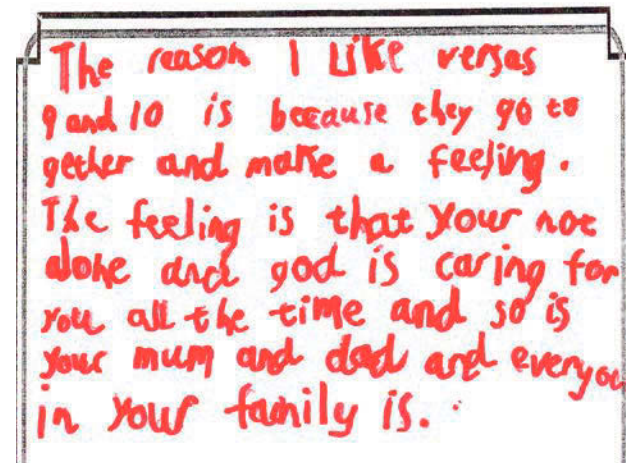 The reason I Like verses
9 and 10 is because they go to
gether and make a feeling.
The feeling is that your not
alone and god is caring for
you all the time and so is
your mum and dad and everyon
in your family is.